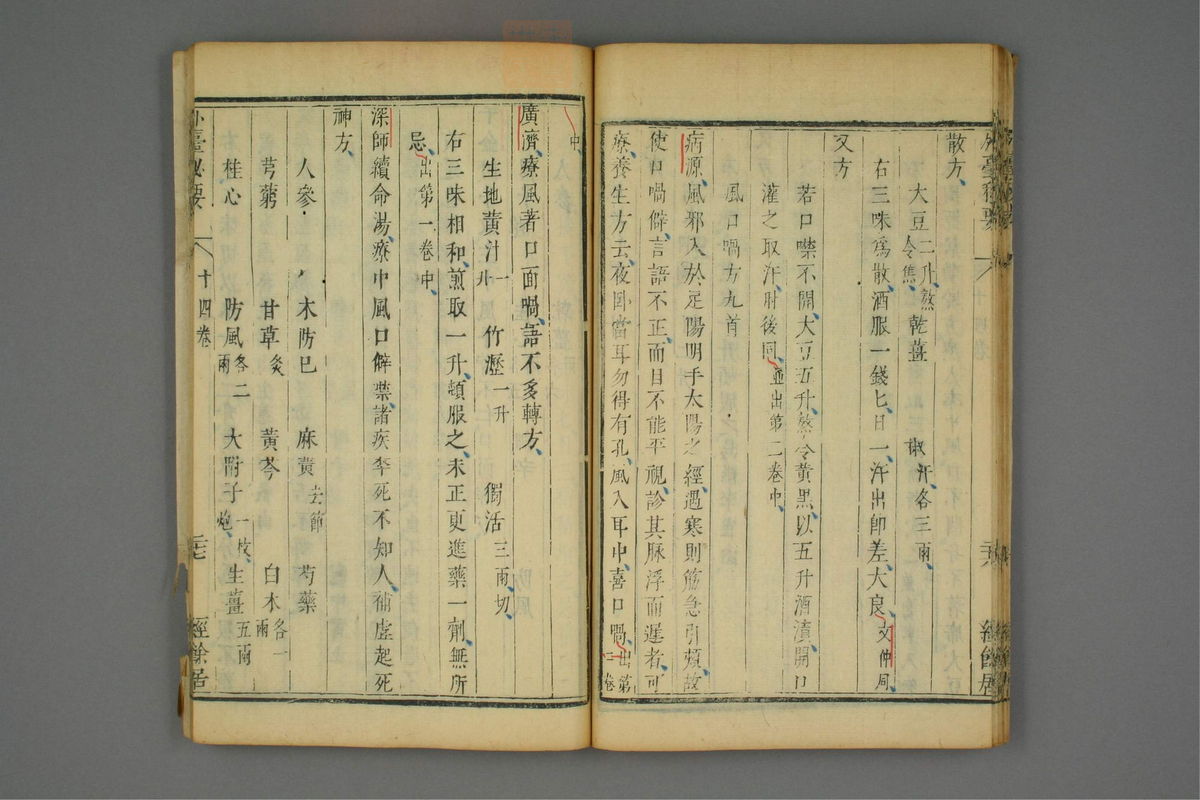 散方
大豆二升熬令焦 乾薑 椒汗各三兩
右三味爲散酒服一錢匕日一汗出卽差大良文仲同
又方
若口噤不開大豆五升熬令黃黑以五升酒漬開口
灌之取汗肘後同並出第二卷中
風口喎方九首
病源風邪入於足陽明手太陽之經遇寒則筋急引頰故
使口喎僻言語不正而目不能平視診其脉浮而遲者可
療養生方云夜臥當耳勿得有孔風入耳中喜口喎出第一卷
中
廣濟療風著口面喎語不多轉方
生地黃汁一升 竹瀝一升 獨活三兩切
右三味相和煎取一升頓服之未正更進藥一劑無所
忌出第一卷中
深師續命湯療中風口僻噤諸疾卒死不知人補虛起死
神方
人參 木防巳 麻黃去節 芍藥
芎藭 甘草炙 黃芩 白朮各一兩
桂心 防風各二兩 大附子一枚炮 生薑五兩
外臺秘要 十四卷 二七 經餘居